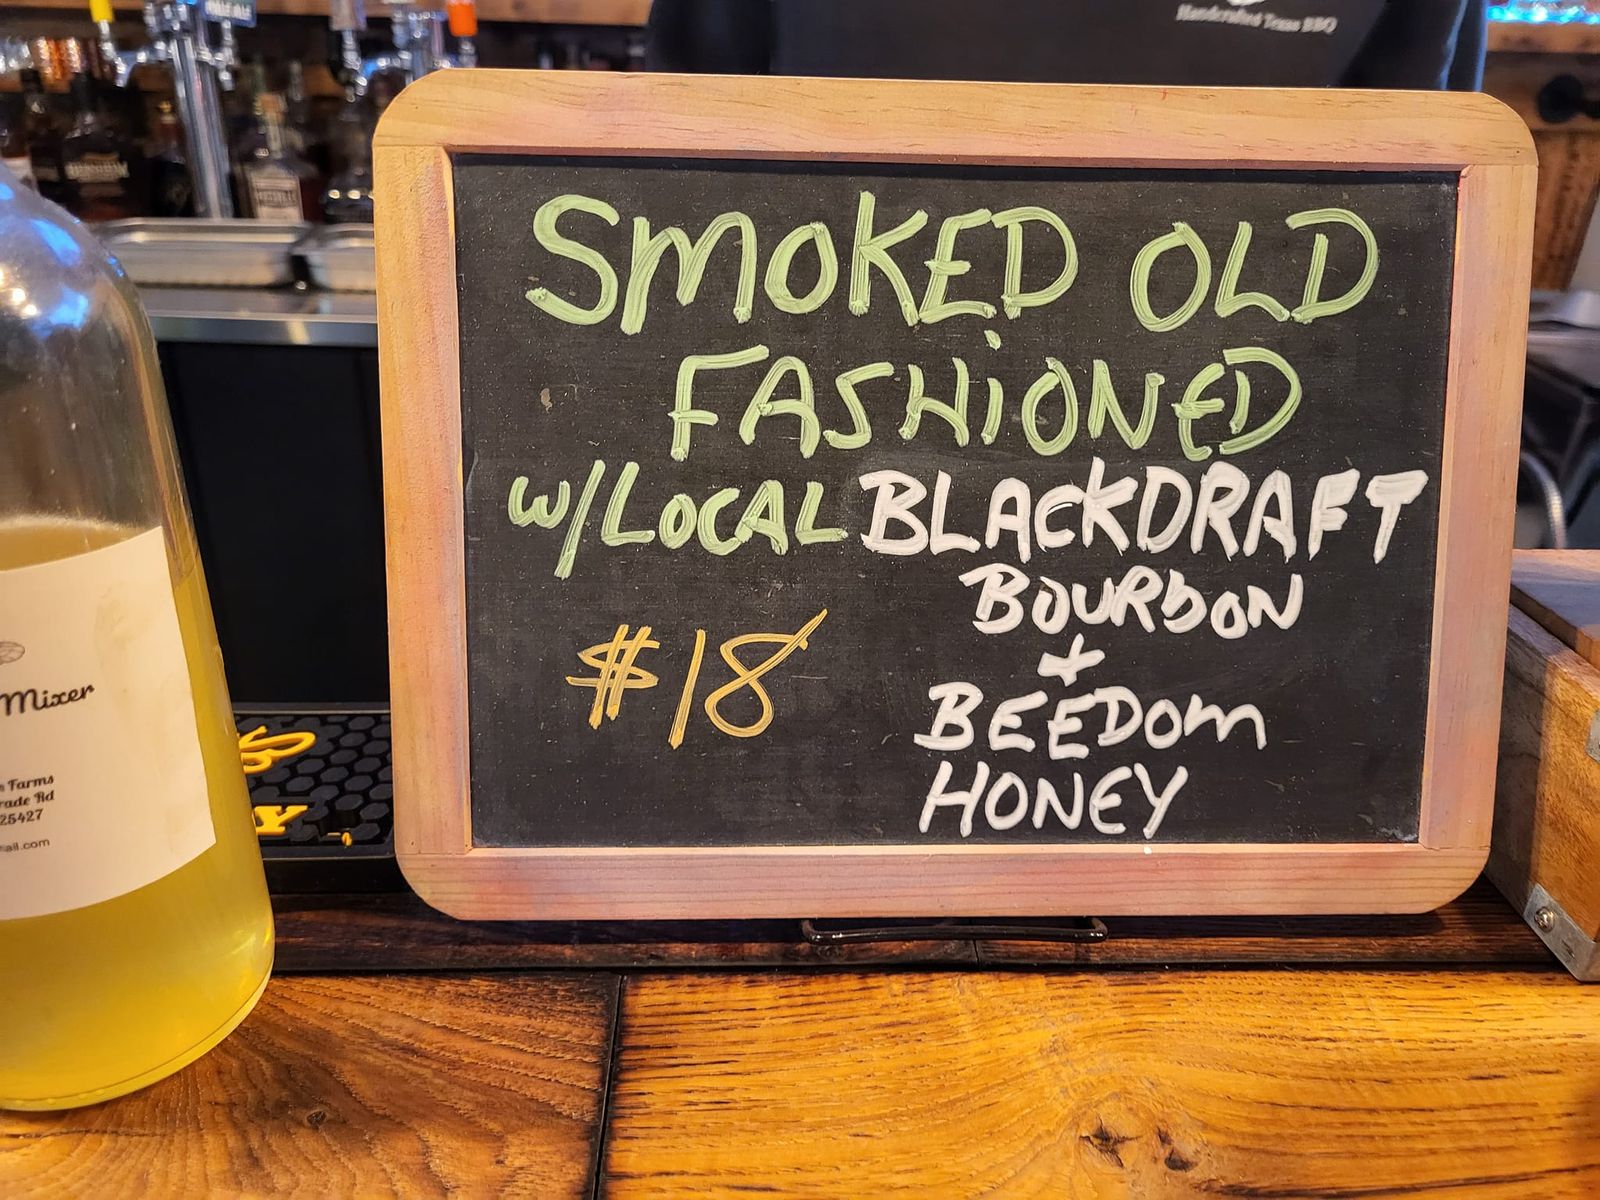 PALE ALE
Handcrafted Texas BBQ
SMOKED OLD
FASHIONED
w/LOCAL BLACKDRAFT
BOURBON
&
BEEDOM
HONEY
$18
Mixer
Farms
Rd
25427